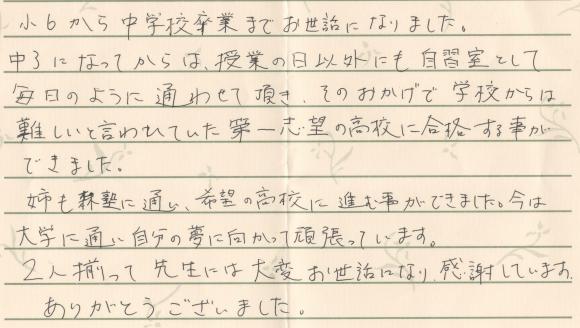 小6から中学校卒業までお世話になりました。
中3になってからは、授業の日以外にも自習室として
毎日のように通わせて頂き、そのおかげで学校からは
難しいと言われていた第一志望の高校に合格する事が
できました。
姉も森塾に通い、希望の高校に進む事ができました。今は
大学に通い自分の夢に向かって頑張っています。
2人揃って先生には大変お世話になり、感謝しています。
ありがとうございました。